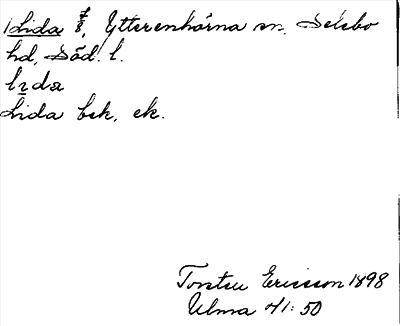 Lida 1/8, Ytterenhörna sn. Selebo
hd, Söd. l.
lɪda
Lida bsk, ek.
Torsten Ericsson 1898
Ulma 41:50